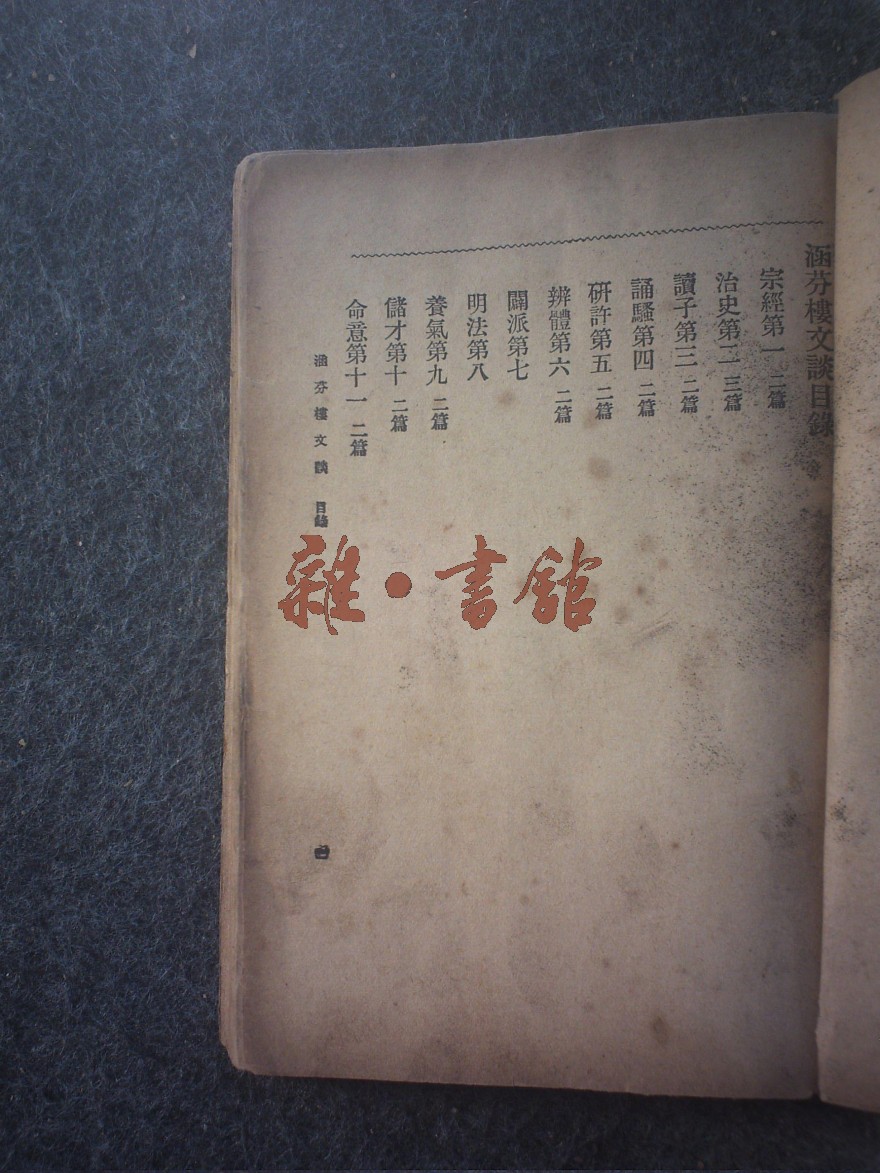 涵芬樓文談目錄
宗經第一 二篇
治史第二 三篇
讀子第三 二篇
誦騷第四 二篇
研許第五 二篇
辨體第六 二篇
闢派第七
明法第八
養氣第九 二篇
儲才第十 二篇
命意第十一 二篇
涵芬樓文談 目錄
雜·書館